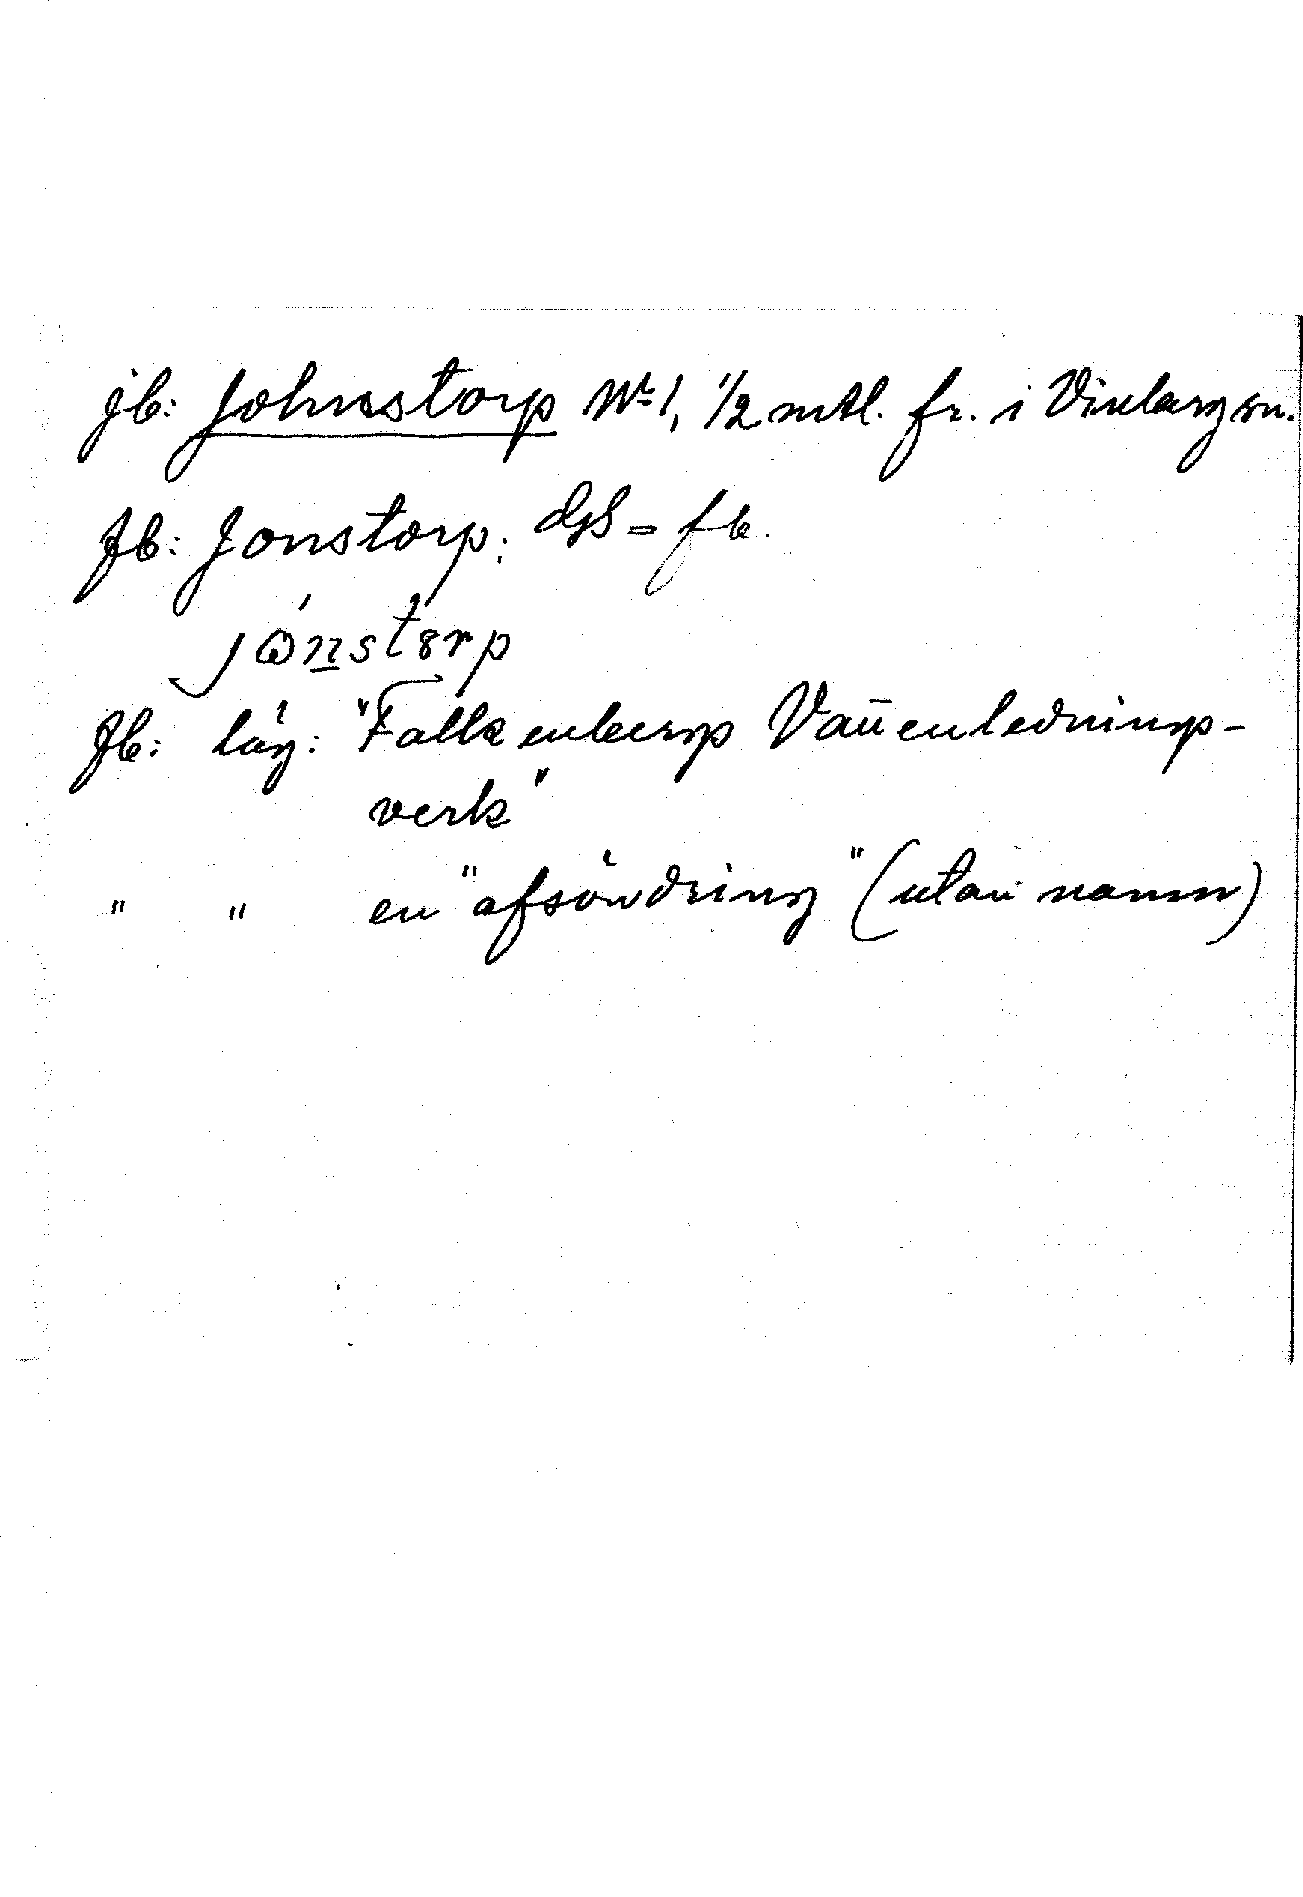 jb: Johnstorp No 1, 1/2 mtl. fr. i Vinberg sn.
fb: Jonstorp; dgs = fb.
jònstorp
fb: läg: "Falkenbergs Vattenlednings-
verk"
" " en "afsöndring" (utan namn)